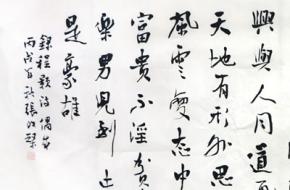 興與人同道
天地有形外思
風雲變態中
富貴不淫貧
樂男兒到
是豪雄
錄程顥詩偶成
丙戌